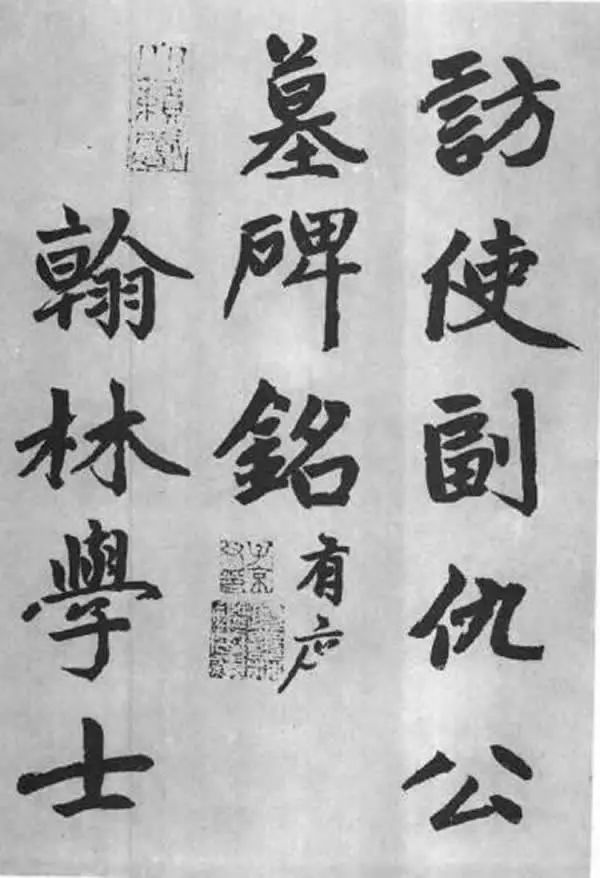 訪使副仇公
墓碑銘有序
翰林學士